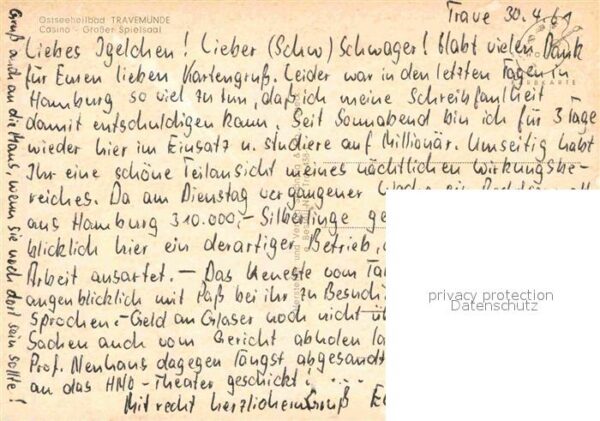 Ostseeheilbad TRAVEMÜNDE
Casino - Großer Spielsaal
Trave 30.4.61
Liebes Igelchen! Lieber (Schw) Schwager! Habt vielen Dank
für Euren lieben Kartengruß. Leider war in den letzten Tagen in
Hamburg so viel zu tun, daß ich meine Schreibfaulheit
damit entschuldigen kann. Seit Sonnabend bin ich für 3 Tage
wieder hier im Einsatz u. studiere auf Millionär. Umseitig habt
Ihr eine schöne Teilansicht meines nächtlichen Wirkungsbe-
reiches. Da am Dienstag vergangener
aus Hamburg 310.000,- Silberlinge ge
blicklich hier ein derartiger Betrieb,
Arbeit ausartet. - Das Neueste vom
augenblicklich mit Paß bei ihr zu Besuch
sprochen. - Geld an Glaser noch nicht
Sachen auch vom Gericht abholen la
Prof. Neuhaus dagegen längst abgesandt
an das HNO-Theater geschickt! ....
Mit recht herzlichem Gruß
Gruß auch an die Maus, wenn sie noch dort sein sollte!
privacy protection
Datenschutz